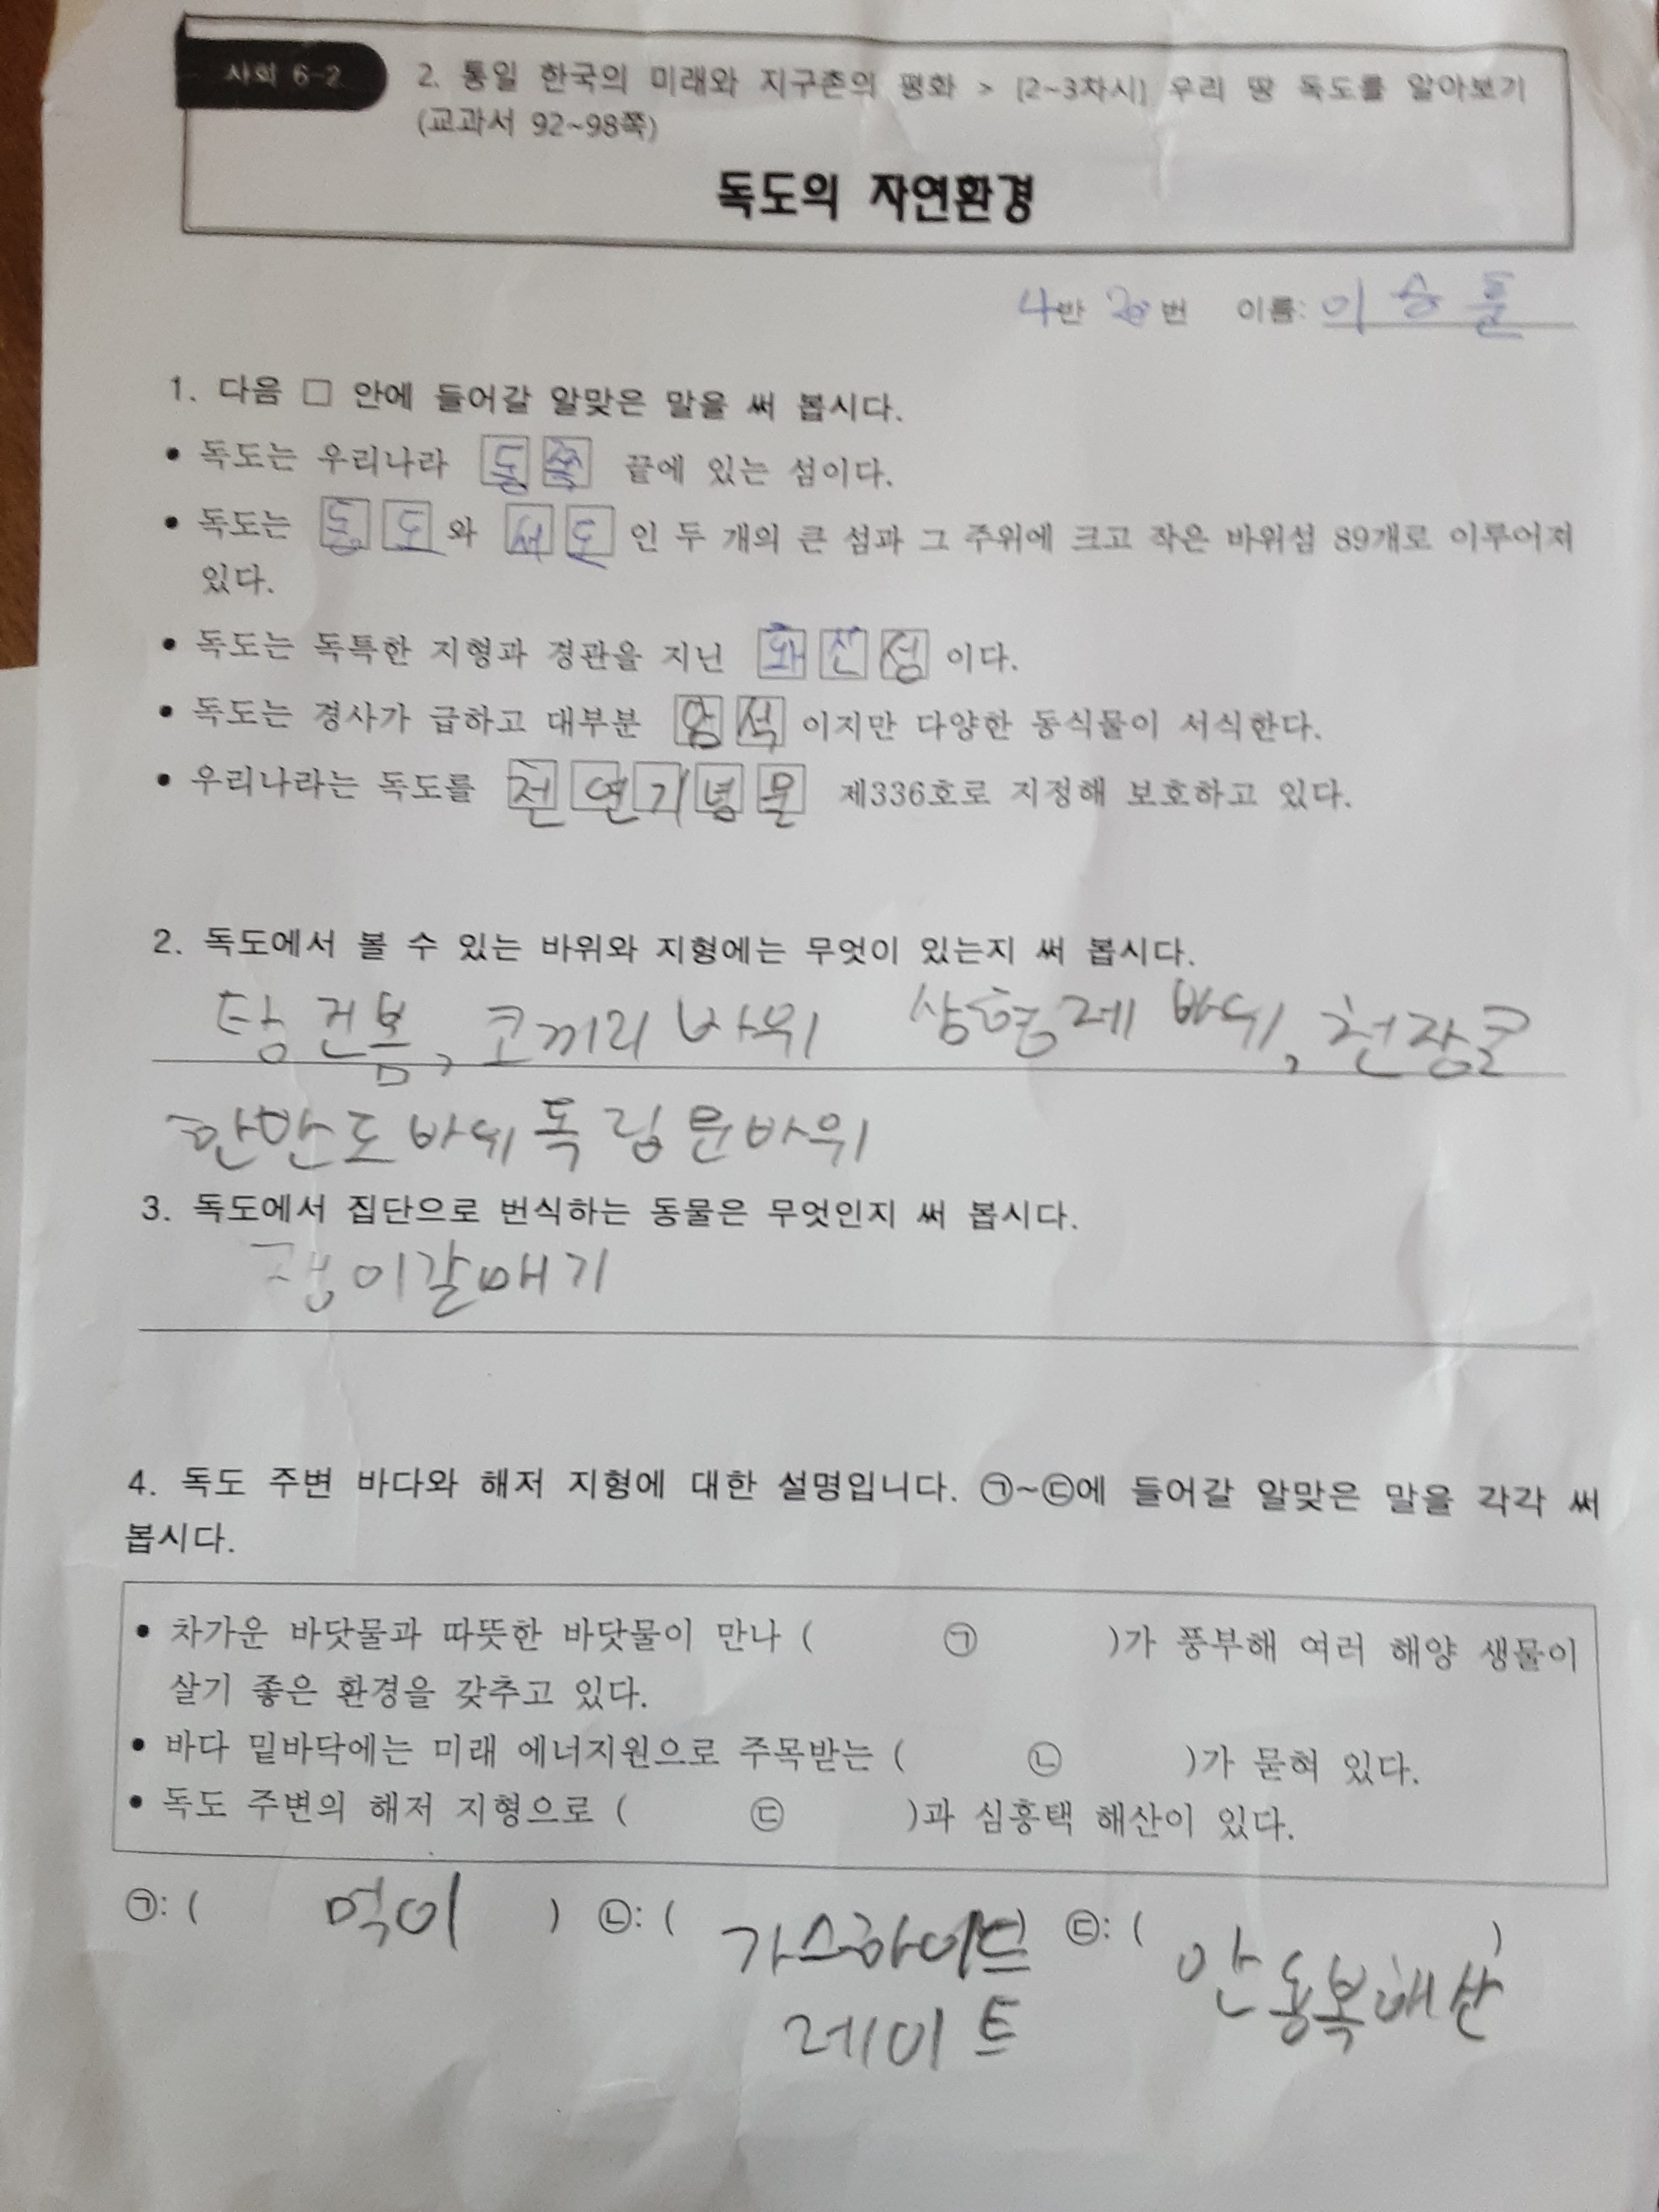 사회 6-2
2. 통일 한국의 미래와 지구촌의 평화 > [2~3차시] 우리 땅 독도를 알아보기
(교과서 92~98쪽)
독도의 자연환경
4반 20번 이름: 이승
1. 다음 □ 안에 들어갈 알맞은 말을 써 봅시다.
• 독도는 우리나라 동쪽 끝에 있는 섬이다.
• 독도는 동도와 서도인 두 개의 큰 섬과 그 주위에 크고 작은 바위섬 89개로 이루어져
있다.
• 독도는 독특한 지형과 경관을 지닌 화산섬이다.
• 독도는 경사가 급하고 대부분 암석이지만 다양한 동식물이 서식한다.
• 우리나라는 독도를 천연기념물 제336호로 지정해 보호하고 있다.
2. 독도에서 볼 수 있는 바위와 지형에는 무엇이 있는지 써 봅시다.
탕건봉, 코끼리 바위 삼형제 바위, 천장굴
한반도바위 독립문바위
3. 독도에서 집단으로 번식하는 동물은 무엇인지 써 봅시다.
괭이갈매기
4. 독도 주변 바다와 해저 지형에 대한 설명입니다. ㉠~㉢에 들어갈 알맞은 말을 각각 써
봅시다.
• 차가운 바닷물과 따뜻한 바닷물이 만나 ( ㉠ )가 풍부해 여러 해양 생물이
살기 좋은 환경을 갖추고 있다.
• 바다 밑바닥에는 미래 에너지원으로 주목받는 ( ㉡ )가 묻혀 있다.
• 독도 주변의 해저 지형으로 ( ㉢ )과 심흥택 해산이 있다.
㉠: ( 먹이 ) ㉡: ( 가스하이드 ) ㉢: ( 안용복해산 )
레이트